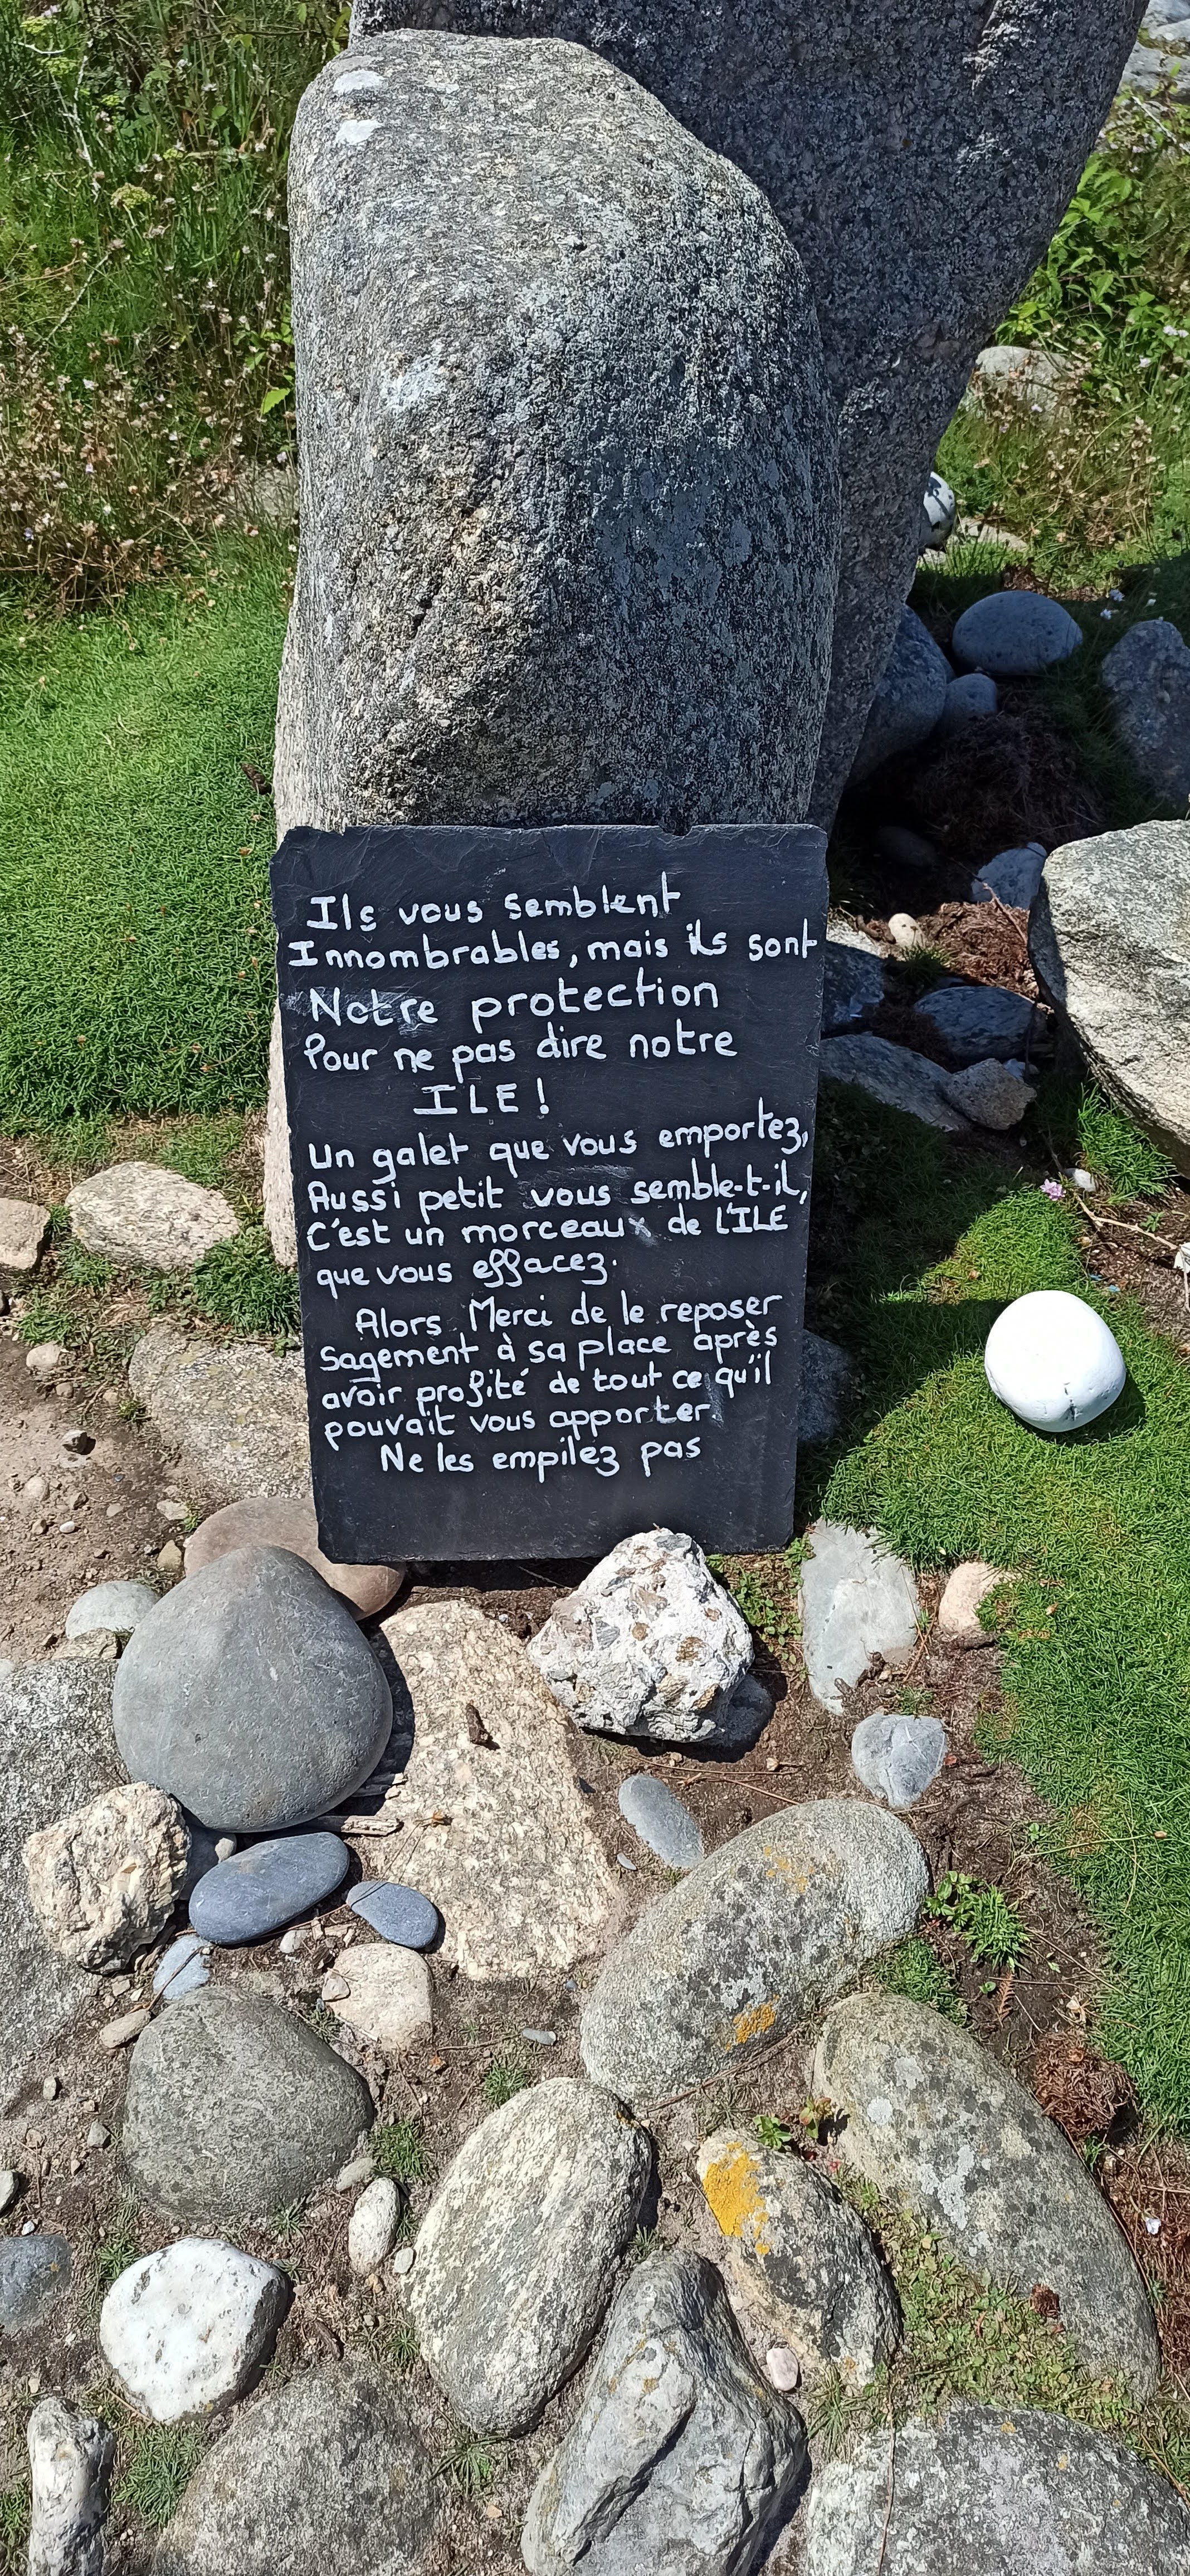 Ils vous semblent
Innombrables, mais ils sont
Notre protection
Pour ne pas dire notre
ILE !
Un galet que vous emportez,
Aussi petit vous semble-t-il,
C'est un morceaux de l'ILE
que vous effacez.
Alors Merci de le reposer
Sagement à sa place après
avoir profité de tout ce qu'il
pouvait vous apporter.
Ne les empilez pas